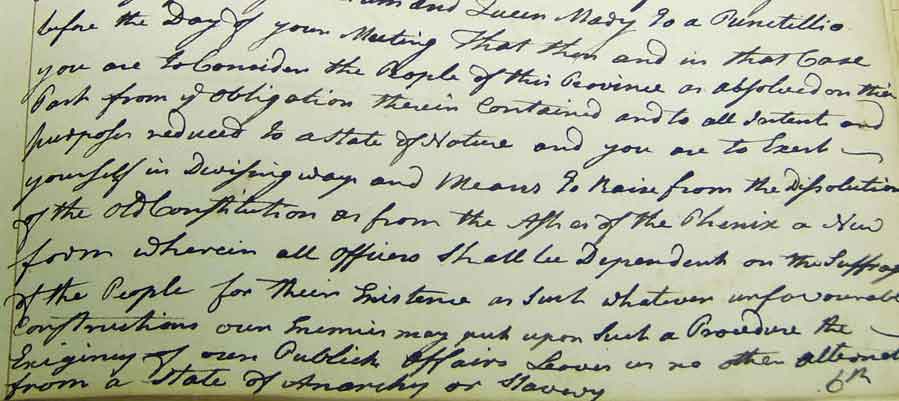 and Queen Mary to a Punctillio
before the Day of your Meeting That then and in that Case
you are to Consider the People of this Province as absolved on their
Part from ye Obligation therein Contained and to all Intents and
purposes reduced to a State of Nature and you are to Exert
yourself in Devising ways and Means to Raise from the Dissolution
of the Old Constitution as from the Ashes of the Phenix a New
form wherein all Officers Shall be Dependent on the Suffrag
of the People for their Existence as Such whatever unfavourabl
Constructions our Enemies may put upon Such a Procedure the
Exigincy of our Publick Affairs Leaves us no other alternat
from a State of Anarchy or Slavery
6th